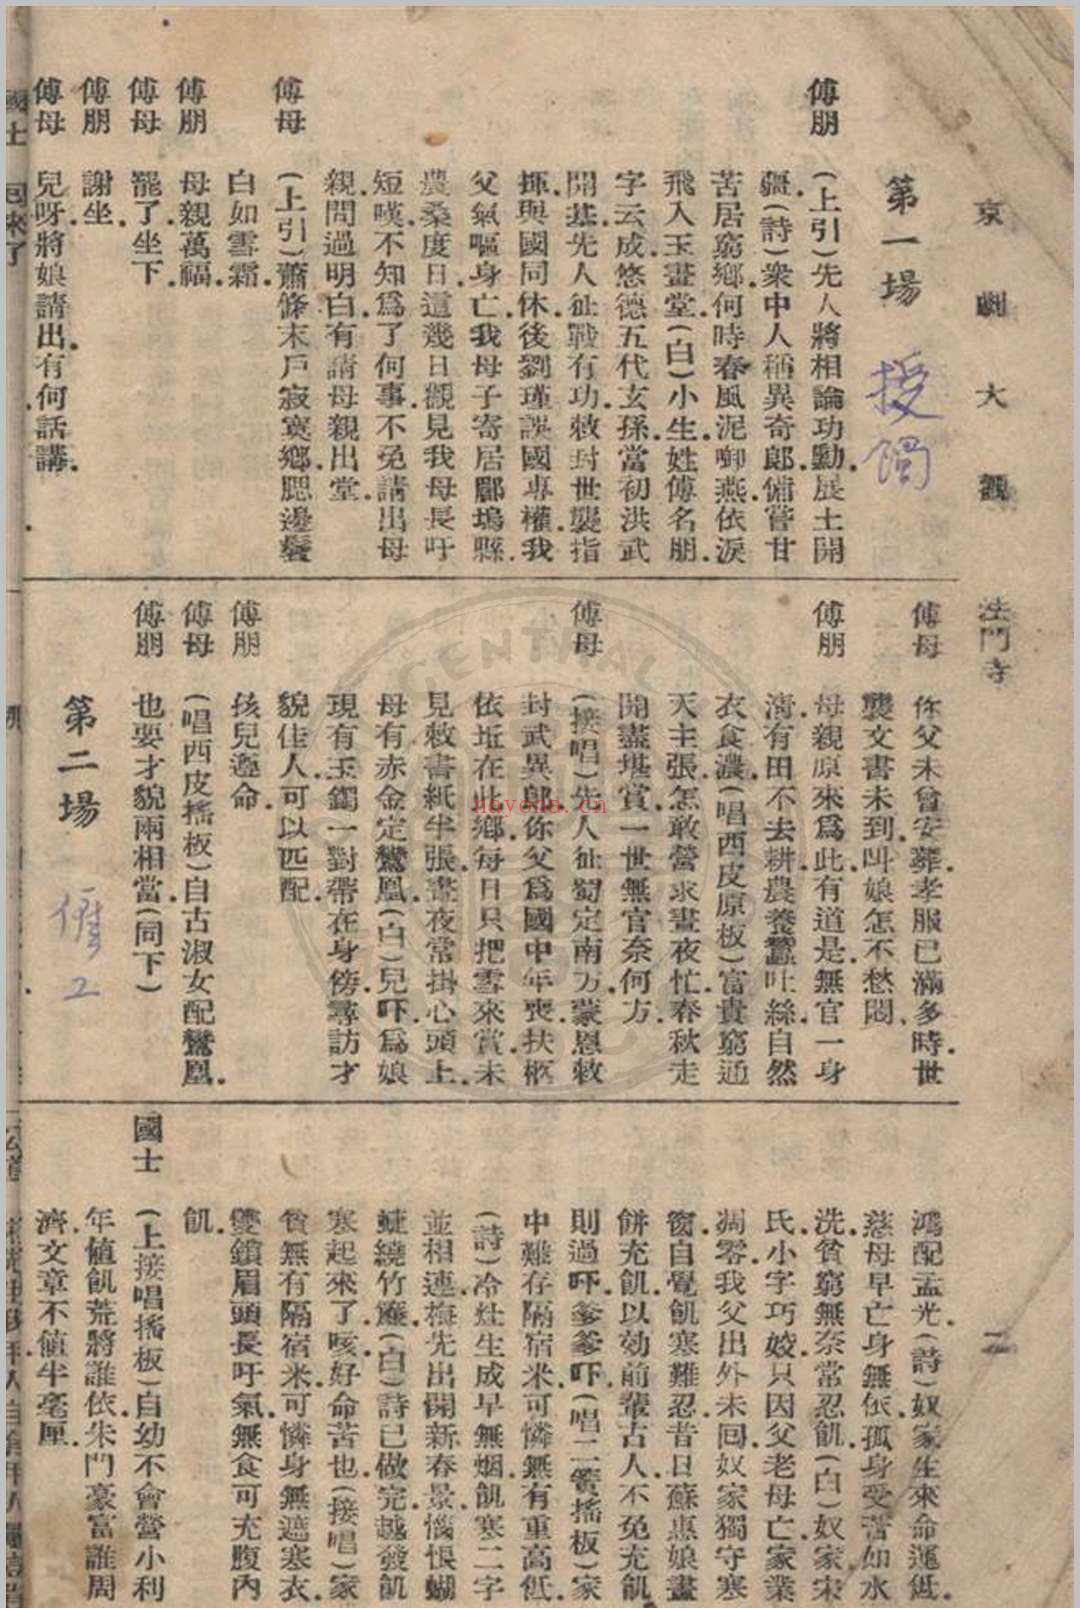 京劇大觀 法門寺 二
第一場 授镯
傅朋 (上引)先人將相論功勳.展土開
疆.(詩)衆中人稱異奇郎.備嘗甘
苦居窮鄉.何時春風泥啣燕.依淚
飛入玉畫堂.(白)小生.姓傅名朋.
字云成.悠德五代玄孫.當初洪武
開基.先人征戰有功.敕封世襲指
揮.與國同休.後劉瑾誤國專權.我
父氣嘔身亡.我母子寄居郿塢縣.
農桑度日.這幾日觀見我母長吁
短嘆.不知爲了何事.不免請出母
親.問過明白.有請母親出堂.
傅母 (上引)蕭條末戶寂寞鄉.腮邊鬢
白如雪霜.
傅朋 母親萬福.
傅母 罷了.坐下.
傅朋 謝坐.
傅母 兒呀.將娘請出.有何話講.
傅母 你父未曾安葬.孝服已滿多時.世
襲文書未到.叫娘怎不愁悶.
傅朋 母親原來爲此.有道是.無官一身
清.有田不去耕.農養蠶吐絲.自然
衣食濃.(唱西皮原板)富貴窮通
天主張.怎敢營求晝夜忙.春秋走
開盡堪賞.一世無官奈何方.
傅母 (接唱)先人征蜀定南方.蒙恩敕
封武異郎.你父爲國中年喪.扶柩
依坵在此鄉.每日只把雪來賞.未
見敕書紙半張.晝夜常掛心頭上.
母有赤金定鸞凰.(白)兒吓.爲娘
現有玉鐲一對.帶在身傍.尋訪才
貌佳人.可以匹配.
傅朋 孩兒遵命.
傅母 (唱西皮搖板)自古淑女配鸞凰.
傅朋 也要才貌兩相當.(同下)
第二場
鴻配孟光.(詩)奴家生來命運低.
慈母早亡身無依.孤身受苦如水
洗.貧窮無奈常忍飢.(白)奴家宋
氏.小字巧姣.只因父老母亡.家業
凋零.我父出外未回.奴家獨守寒
窗.自覺飢寒難忍.昔日蘇惠娘畫
餅充飢.以効前輩古人.不免充飢
則過.吓.爹爹吓.(唱二簧搖板)家
中難存隔宿米.可憐無有重高低.
(詩)冷灶生成早無烟.飢寒二字
並相連.梅先出開新春景.惱恨蝴
蝶繞竹簾.(白)詩已做完.越發飢
寒起來了.咳.好命苦也.(接唱)家
貧無有隔宿米.可憐身無遮寒衣.
雙鎖眉頭長吁氣.無食可充腹內
飢.
國士 (上接唱搖板)自幼不會營小利.
年值飢荒將誰依.朱門豪富誰周
濟.文章不值半毫厘.
國士 回來了
hayona.cn
CENTRAL